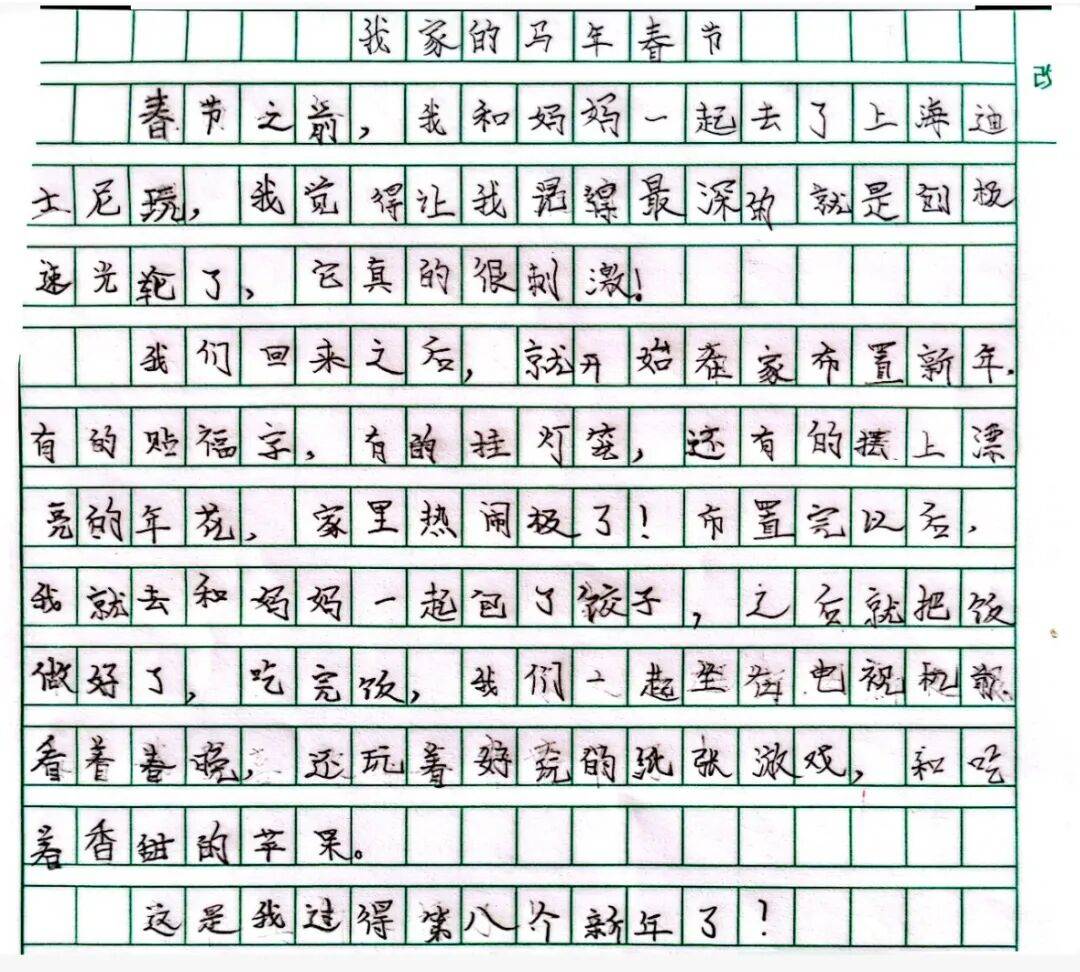 我家的马年春节
改
春节之前，我和妈妈一起去了上海迪
士尼玩，我觉得让我最深的就是创极
速光轮了，它真的很刺激！
我们回来之后，就开始在家布置新年.
有的贴福字，有的挂灯笼，还有的摆上漂
亮的年花，家里热闹极了！布置完以后，
我就去和妈妈一起包了饺子，之后就把饭
做好了，吃完饭，我们一起坐在电视机前
看着春晚，还玩着好玩的纸张游戏，和吃
着香甜的苹果。
这是我过得第八个新年了？